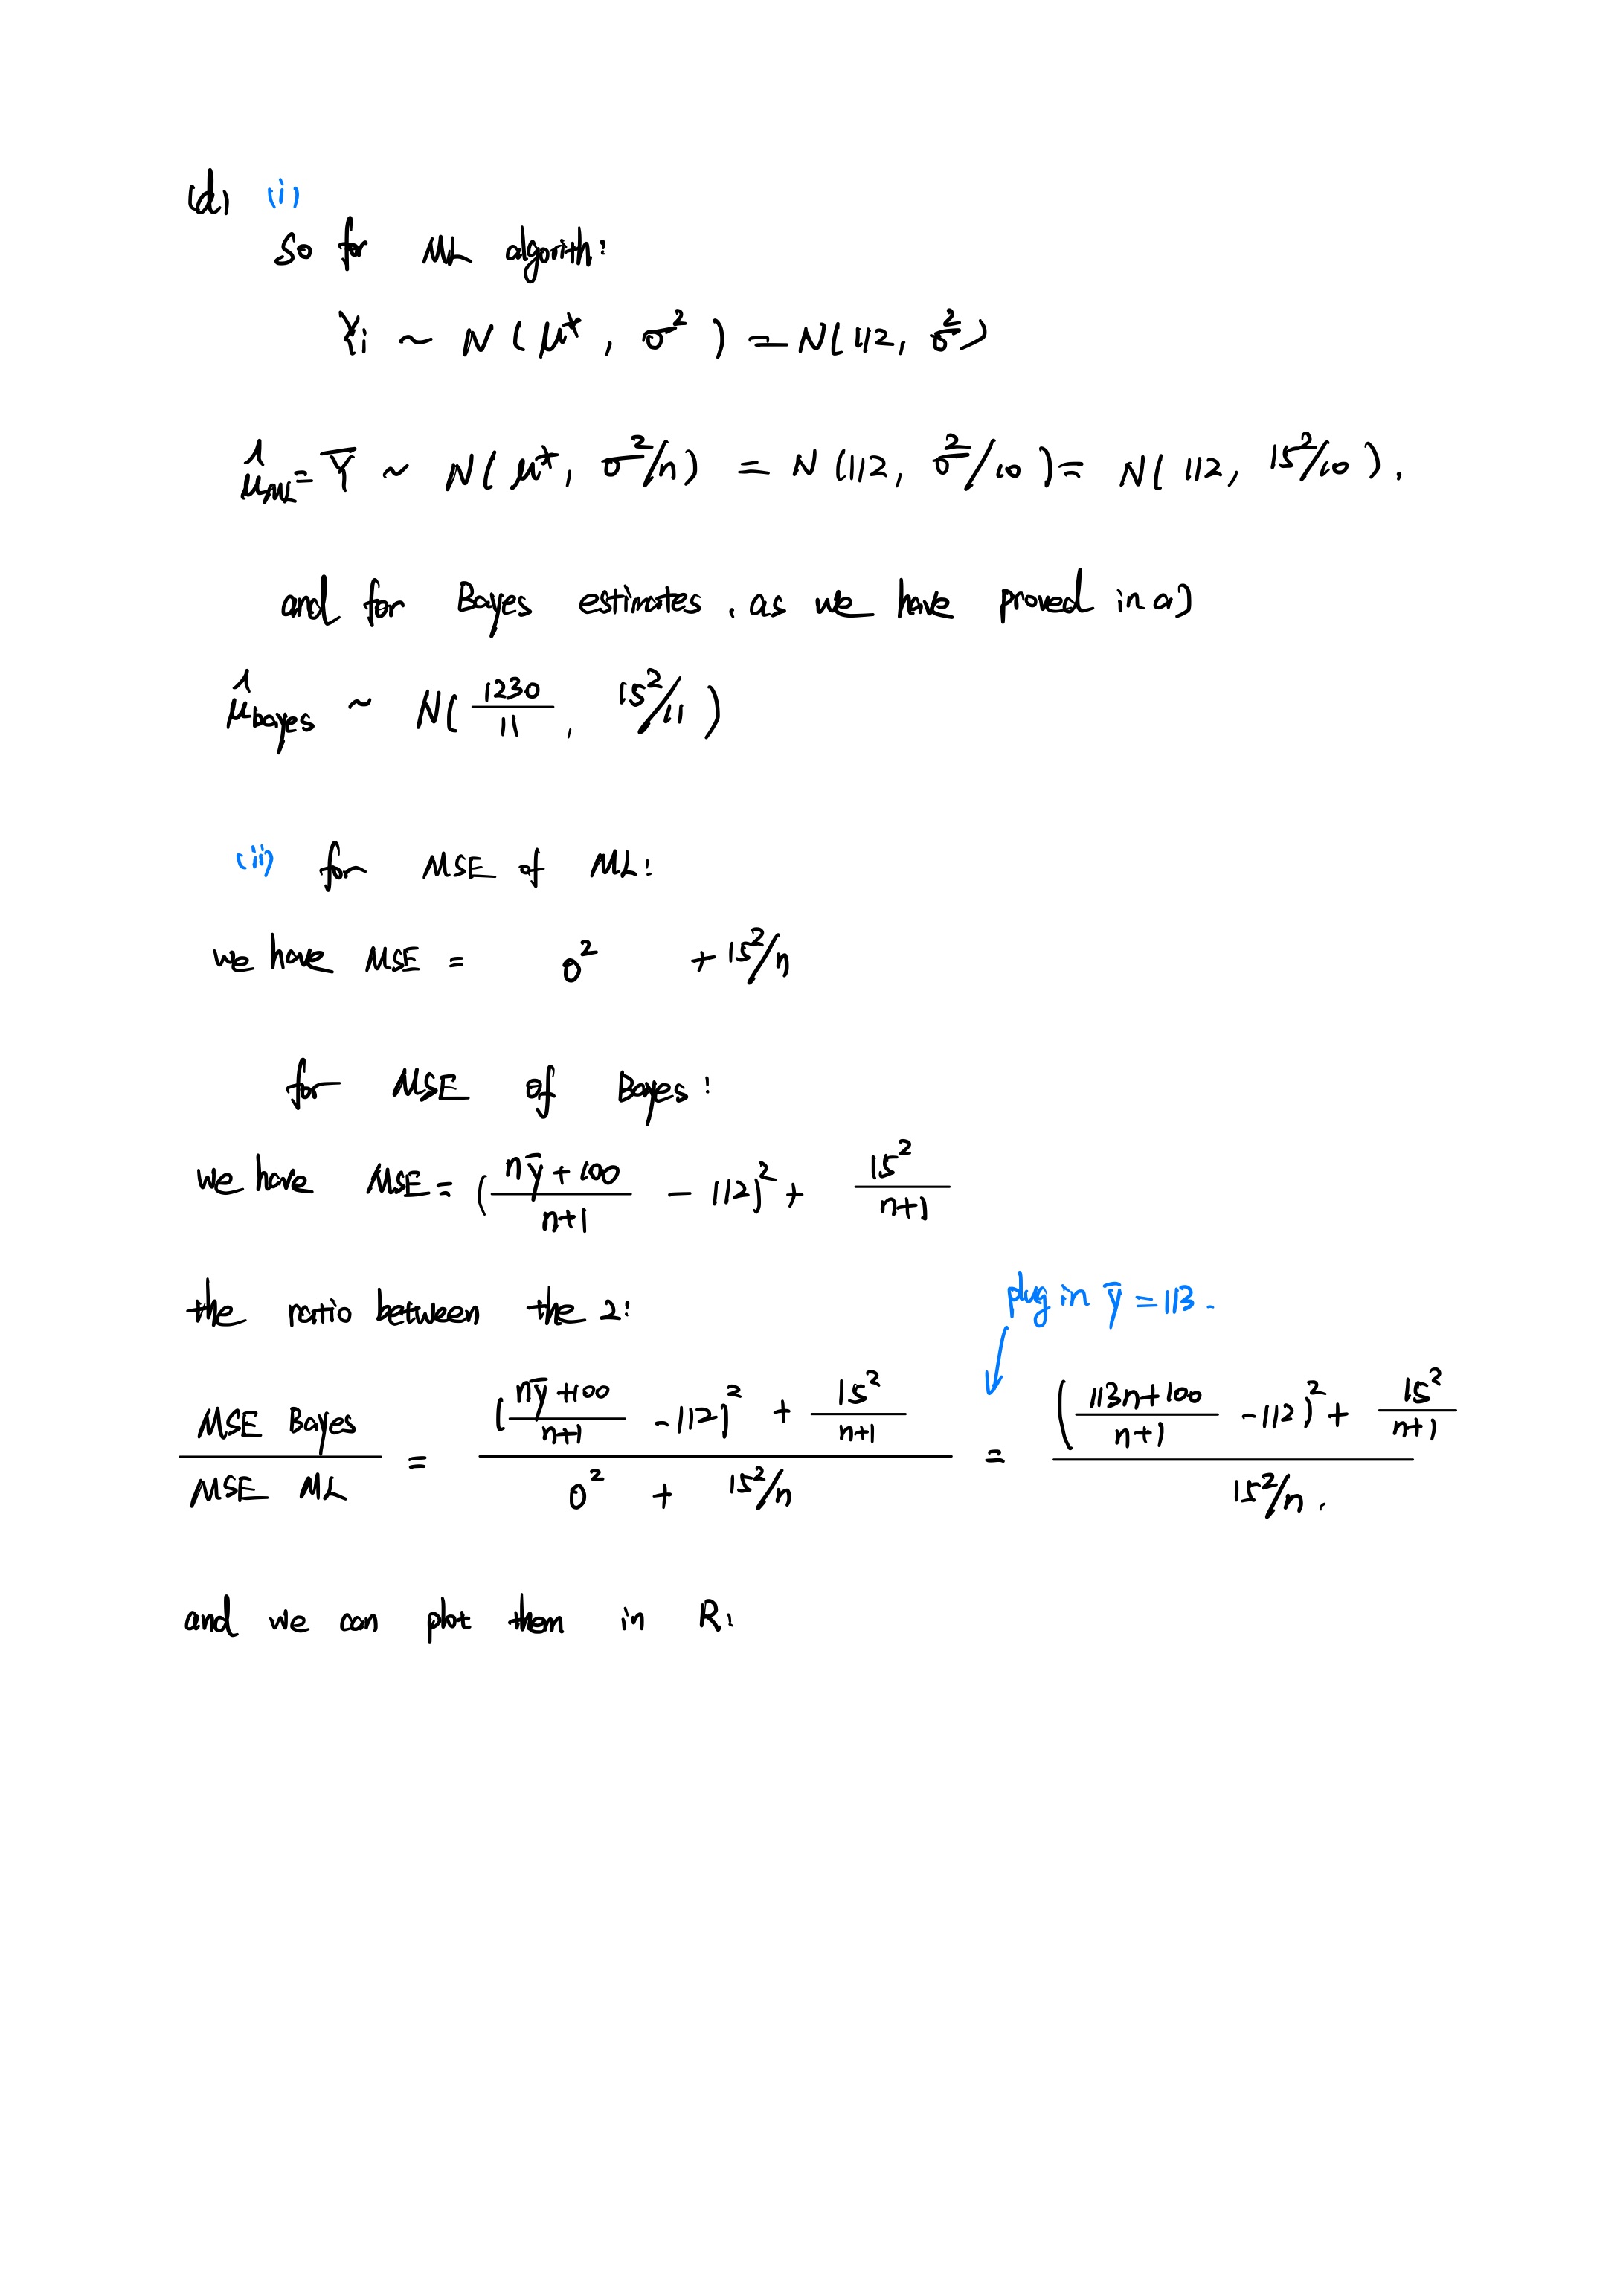 (d) (i)
So for ML algorith:
Yi ~ N(μ*, σ²) = N(112, σ²)
μ̂ML = Ȳ ~ N(μ*, σ²/n) = N(112, σ²/10) = N(112, 15²/10).
and for Bayes estimates, as we have proved in a)
μ̂bayes ~ N(1230/11, 15²/11)
(ii) for MSE of ML:
we have MSE = 0² + 15²/n
for MSE of Bayes:
we have MSE = ((nȳ+100)/(n+1) - 112)² + 15²/(n+1)
the ratio between the 2:
plug in ȳ = 113.
MSE Bayes / MSE ML = (((nȳ+100)/(n+1) - 112)² + 15²/(n+1)) / (0² + 15²/n) = (((113n+100)/(n+1) - 112)² + 15²/(n+1)) / (15²/n).
and we can plot them in R: